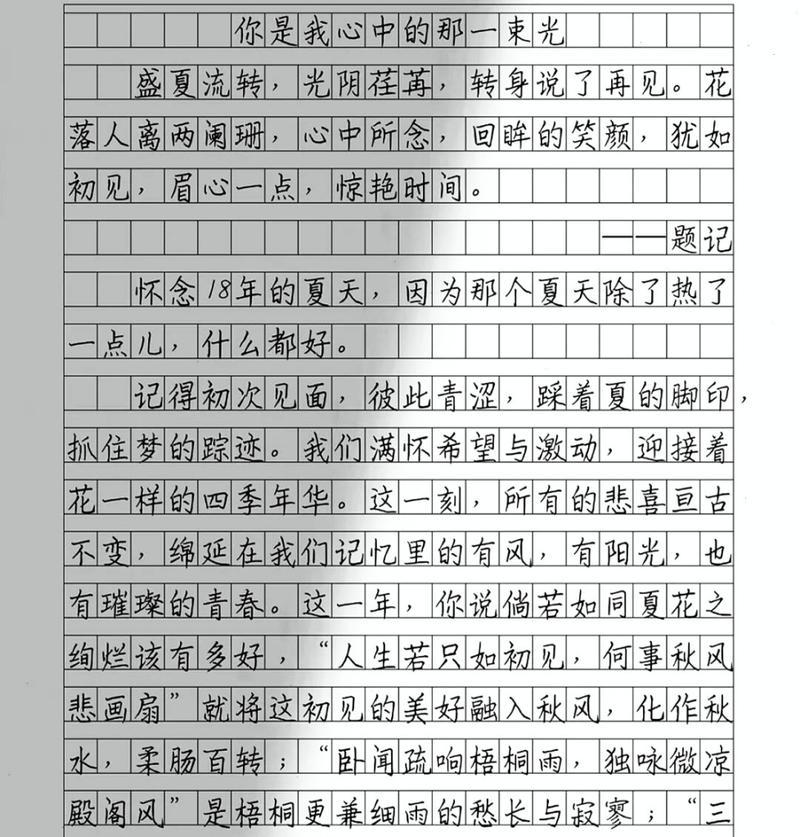 你是我心中的那一束光
盛夏流转，光阴荏苒，转身说了再见。花
落人离两阑珊，心中所念，回眸的笑颜，犹如
初见，眉心一点，惊艳时间。
——题记
怀念18年的夏天，因为那个夏天除了热了
一点儿，什么都好。
记得初次见面，彼此青涩，踩着夏的脚印，
抓住梦的踪迹。我们满怀希望与激动，迎接着
花一样的四季年华。这一刻，所有的悲喜亘古
不变，绵延在我们记忆里的有风，有阳光，也
有璀璨的青春。这一年，你说倘若如同夏花之
绚烂该有多好，“人生若只如初见，何事秋风
悲画扇”就将这初见的美好融入秋风，化作秋
水，柔肠百转；“卧闻疏响梧桐雨，独咏微凉
殿阁风”是梧桐更兼细雨的愁长与寂寥；“三